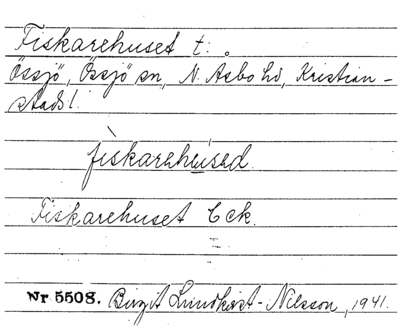 Fiskarehuset t.
Össjö, Össjö sn, N. Åsbo hd, Kristian-
stads l.
fìskarehúsed.
Fiskarehuset Eck.
Nr 5508. Birgit Lundkvist-Nilsson, 1941.